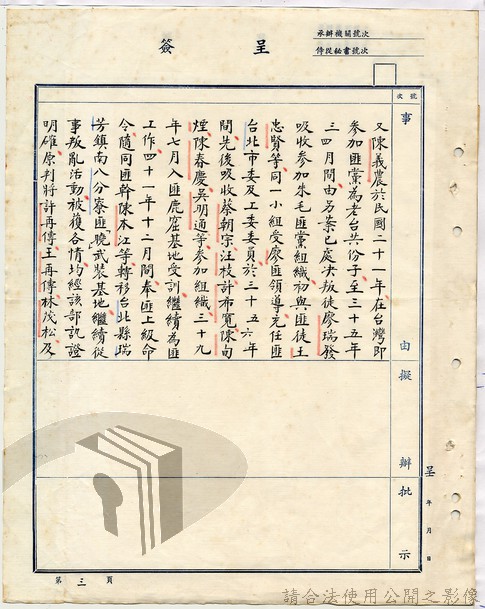 承辦機關號次
侍從秘書號次
簽呈
號次
事由擬辦批示
又陳義農於民國二十一年在台灣即
參加匪黨為老台共份子至三十五年
三四月間由另案已處決叛徒廖瑞發
吸收參加朱毛匪黨組織初與匪徒王
忠賢等同一小組受廖匪領導充任匪
台北市委及工委委員於三十五六年
間先後吸收蔡朝宗汪枝計布寬陳南
煙陳春慶吳明通等參加組織三十九
年七月入匪鹿窟基地受訓繼續為匪
工作四十一年十二月間奉匪上級命
令隨同匪幹陳本江等轉移台北縣瑞
芳鎮南八分寮匪曉武裝基地繼續從
事叛亂活動被獲各情均經該部訊證
明確原判將許再傳王再傳林茂松及
呈 年 月 日
第三頁
請合法使用公開之影像